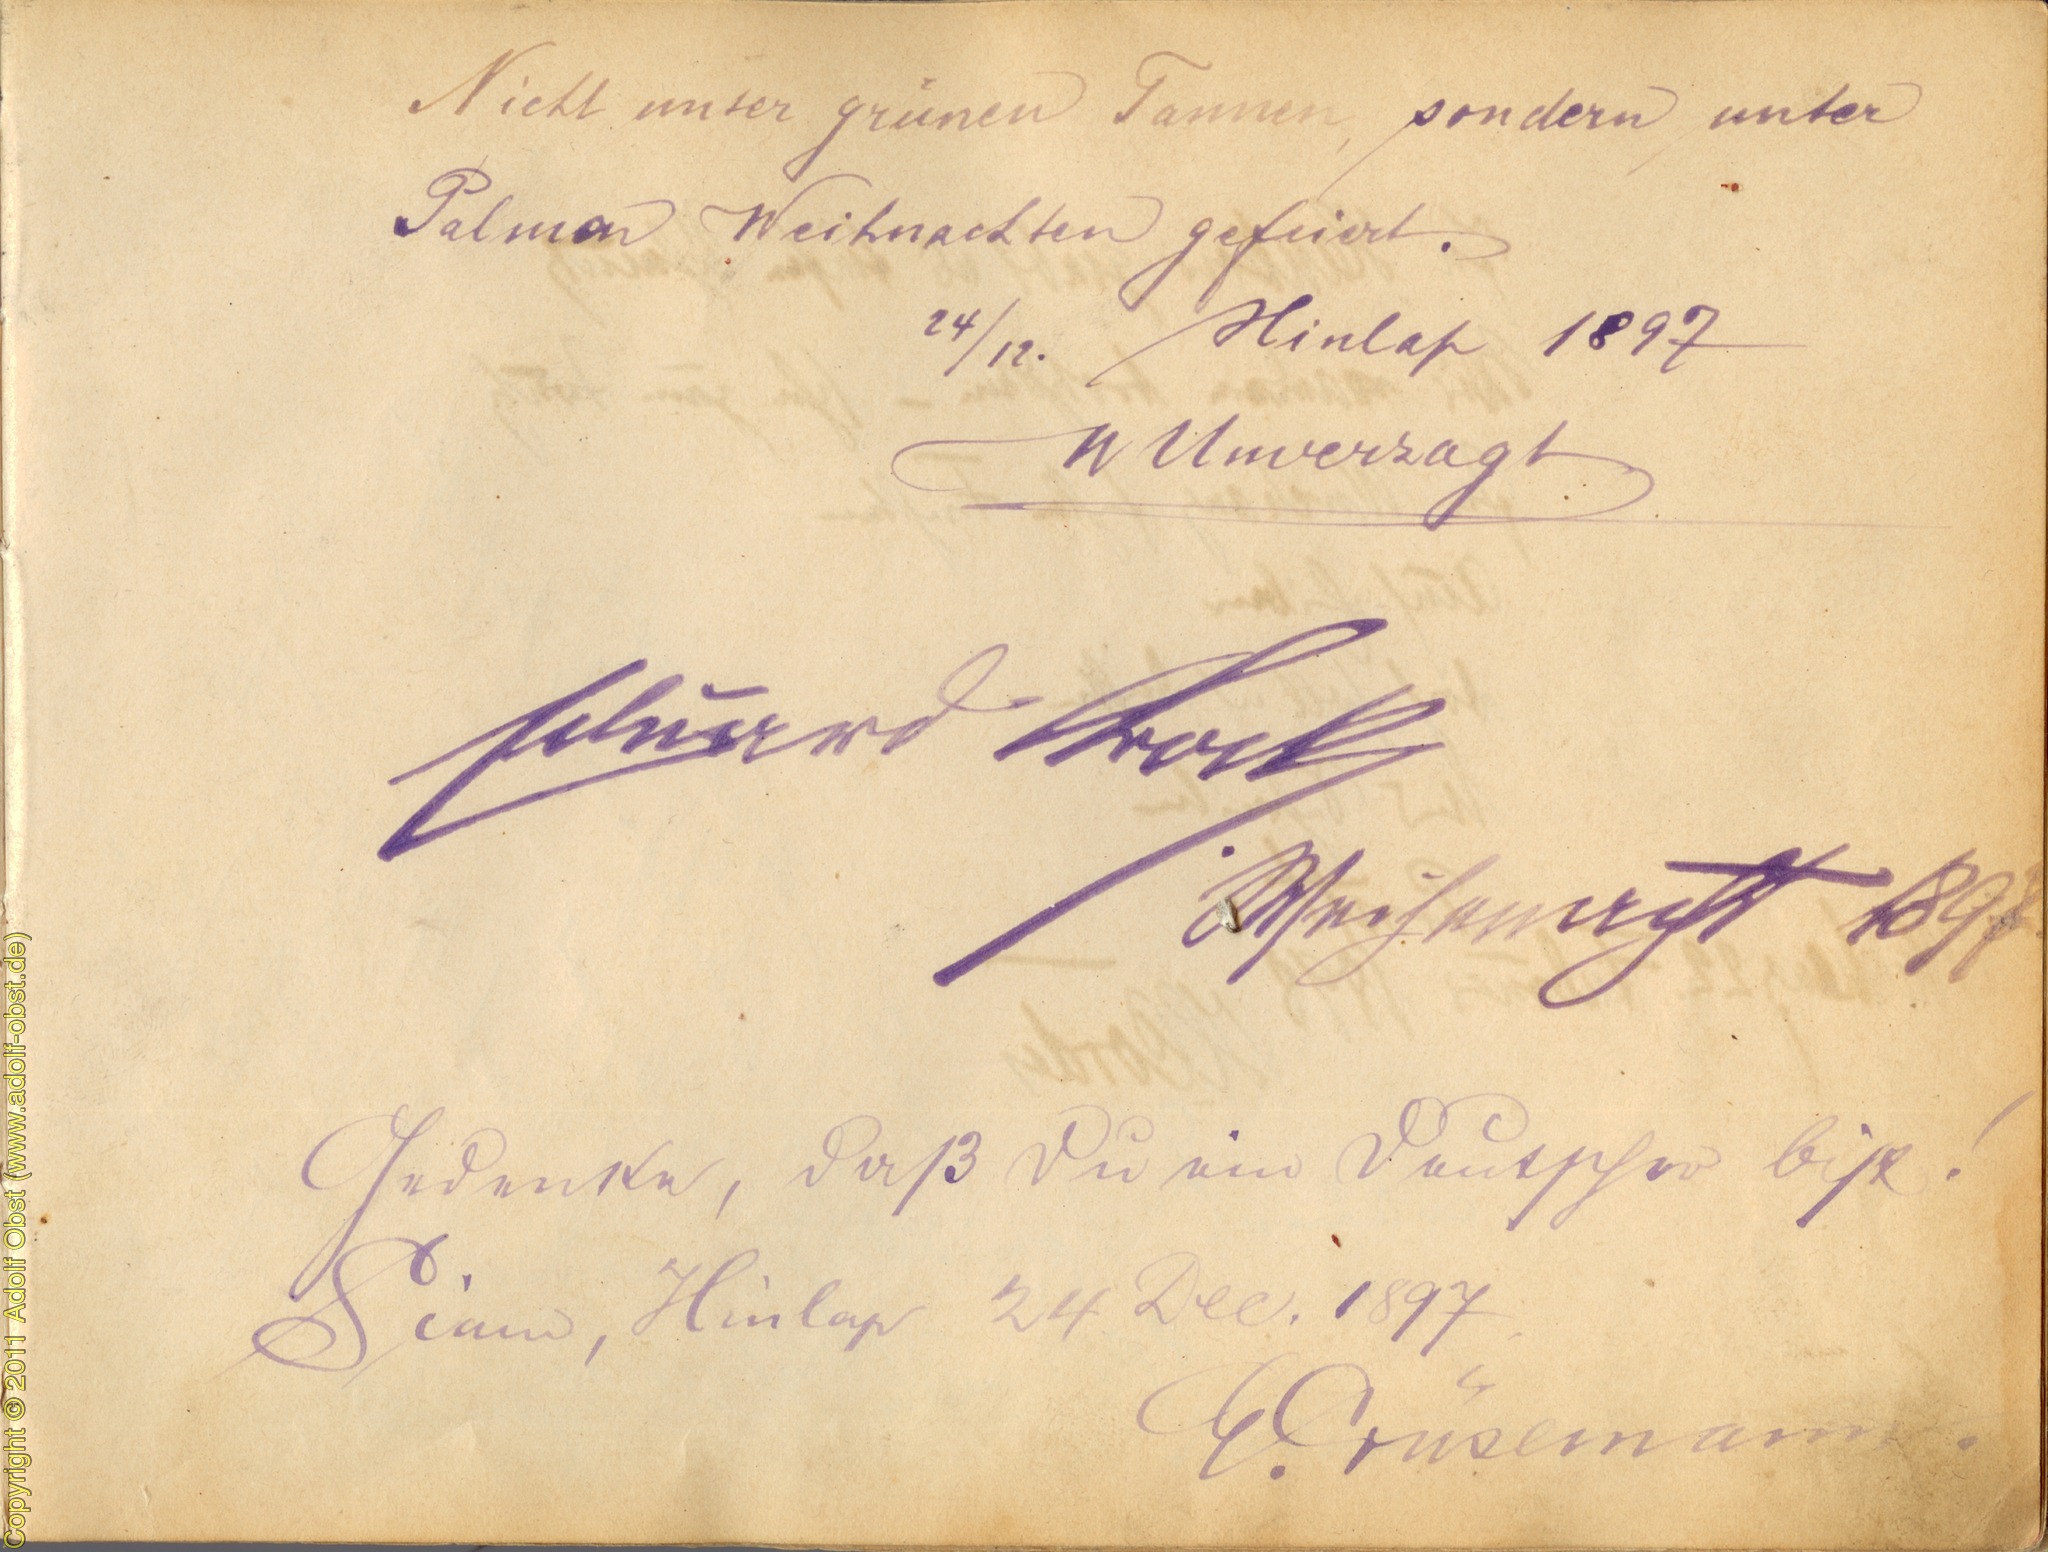 Nicht unter grünen Tannen, sondern unter
Palmen Weihnachten gefeiert.
24/12. Hinlap 1897
W Unverzagt
Eduard Bock
Weihnacht 1897
Gedenke, daß Du ein Deutscher bist!
Siam, Hinlap 24 Dec. 1897.
E. Crüsemann.
Copyright © 2011 Adolf Obst (www.adolf-obst.de)